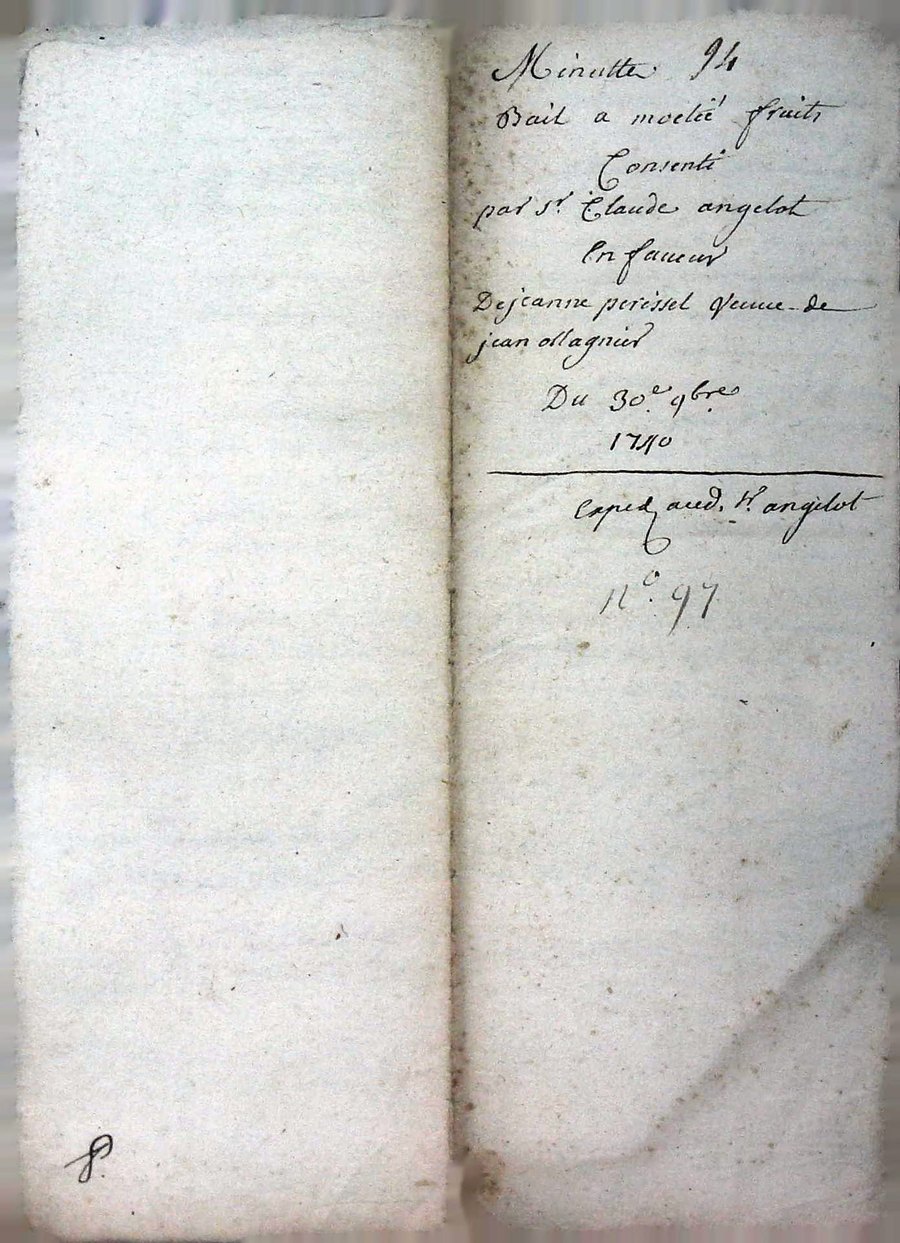 Minutte 94
Bail a moetié fruits
Consenti
par sr. Claude angelot
En faueur
De jeanne perissel Veuue de
jean ollagnier
Du 30e. 9bre.
1740
Exped aud. sr. angelot
n°. 97